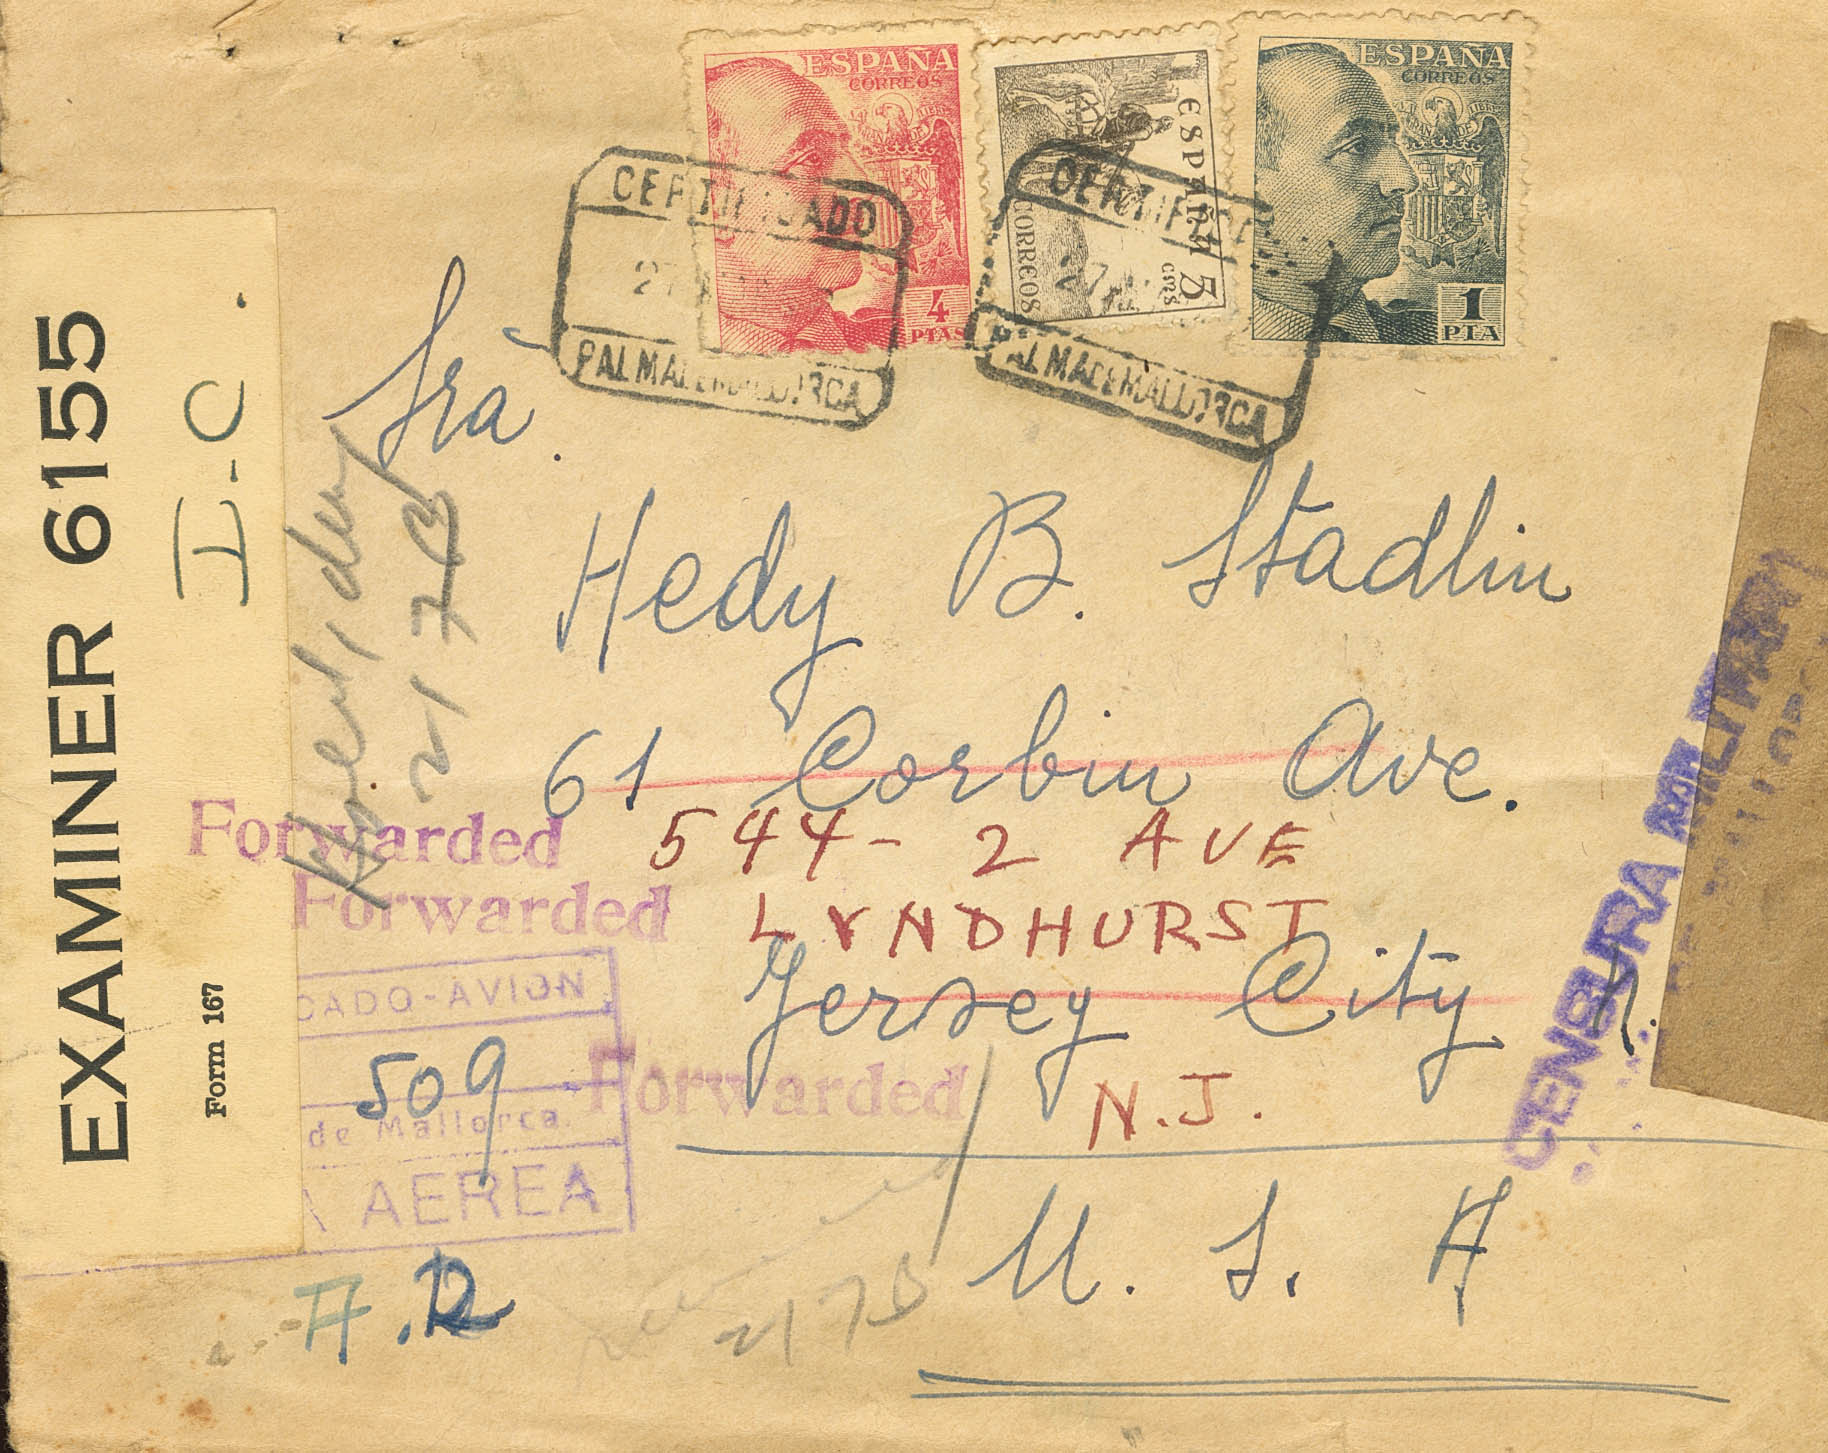 ESPAÑA
CORREOS
4
PTAS
ESPAÑA
CORREOS
5
CTMS
ESPAÑA
CORREOS
1
PTA
CERTIFICADO
27
PALMA DE MALLORCA
PALMA DE MALLORCA
EXAMINER 6155
I.C.
Form 167
Sra.
Hedy B. Stadlin
61 Corbin Ave.
544-2 AVE
LYNDHURST
Jersey City
N.J.
U. S. A
Forwarded
Forwarded
Forwarded
CADO-AVION
509
de Mallorca.
AEREA
A.R
CENSURA MILITAR